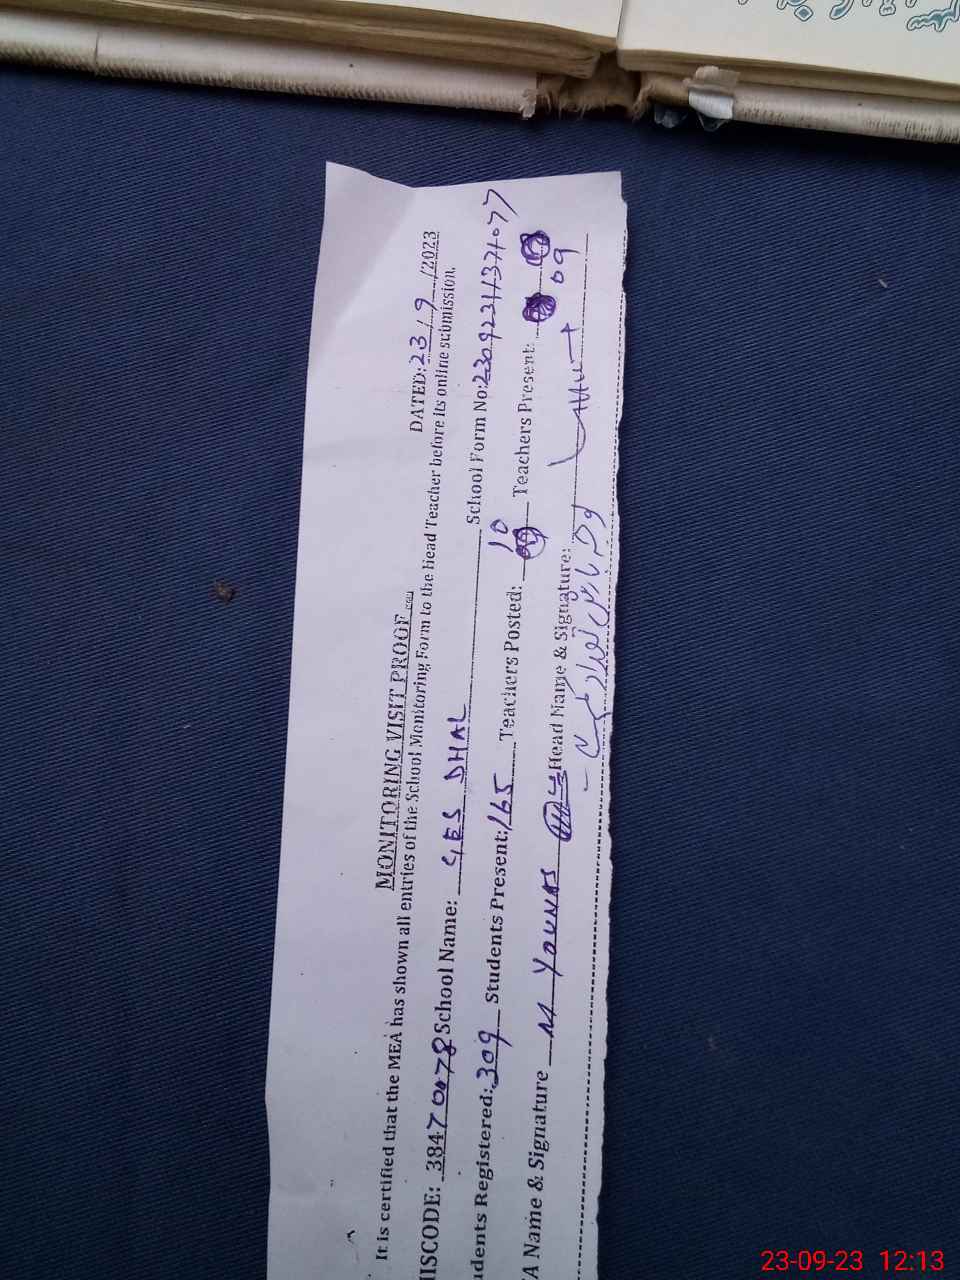 MONITORING VISIT PROOF
DATED: 23/9/2023
It is certified that the MEA has shown all entries of the School Monitoring Form to the Head Teacher before its online submission.
ISCODE: 38470078 School Name: GES DHAL School Form No:
dents Registered: 309 Students Present: 165 Teachers Posted: 10 Teachers Present: 09
A Name & Signature M YOUNAS Head Name & Signature:
23-09-23 12:13